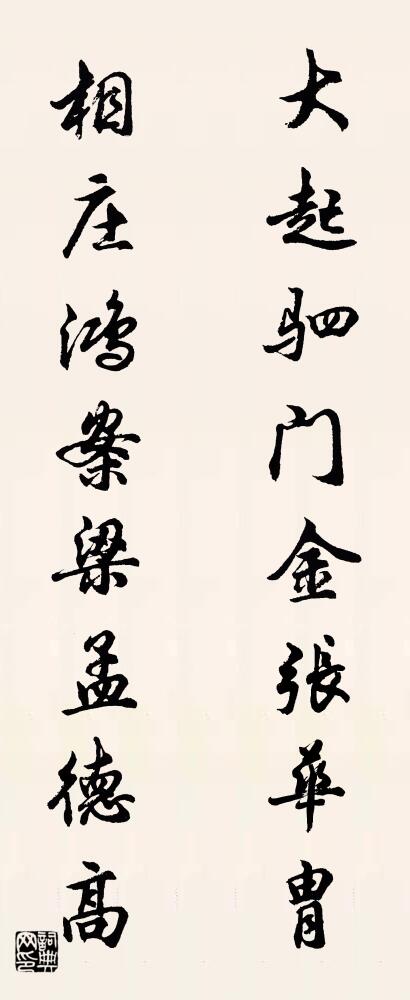 大起驷门金張華胄
相庄鸿案梁孟德高
詞典网印